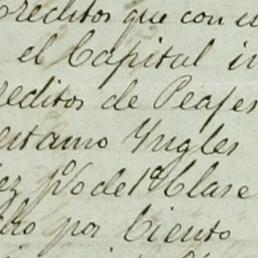 Creditos que con
el Capital in
reditos de Peages
estamo Yngles
ez p%o de 1ª Clase
por Ciento